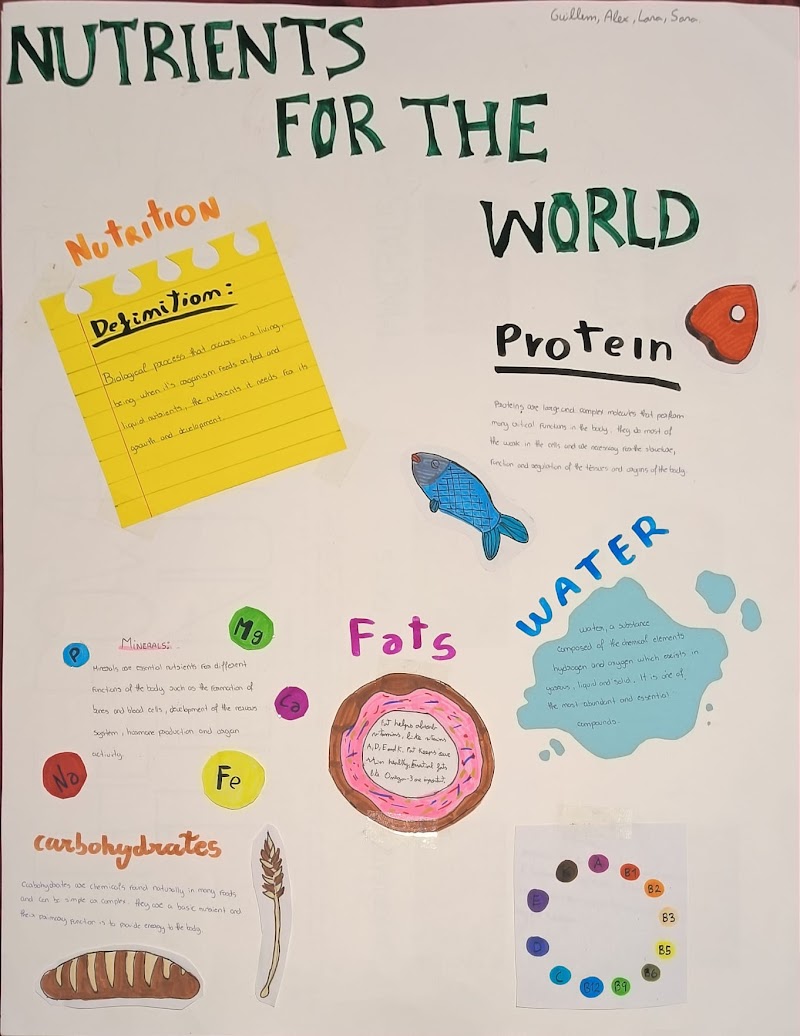 Guillem, Alex, Lara, Sara.
NUTRIENTS
FOR THE
WORLD
NUTRITION
Definition:
Biological process that occurs in a living
being when it's organism feeds on food and
liquid nutrients, the nutrients it needs for its
growth and development.
Protein
Proteins are large and complex molecules that perform
many critical functions in the body. they do most of
the work in the cells and are necessary for the structure,
function and regulation of the tissues and organs of the body.
WATER
water, a substance
composed of the chemical elements
hydrogen and oxygen which exists in
gaseous, liquid and solid. It is one of
the most abundant and essential
compounds.
MINERALS:
Minerals are essential nutrients for different
functions of the body such as the formation of
bones and blood cells, development of the nervous
system, hormone production and organ
activity.
P
Mg
Ca
Na
Fe
Fats
Fat helps absorb
vitamins, like vitamins
A, D, E and K. Fat keeps our
skin healthy, Essential fats
like Omega-3 are important.
carbohydrates
Carbohydrates are chemicals found naturally in many foods
and can be simple or complex. they are a basic nutrient and
their primary function is to provide energy to the body.
A
B1
B2
B3
B5
B6
B9
B12
C
D
E
K